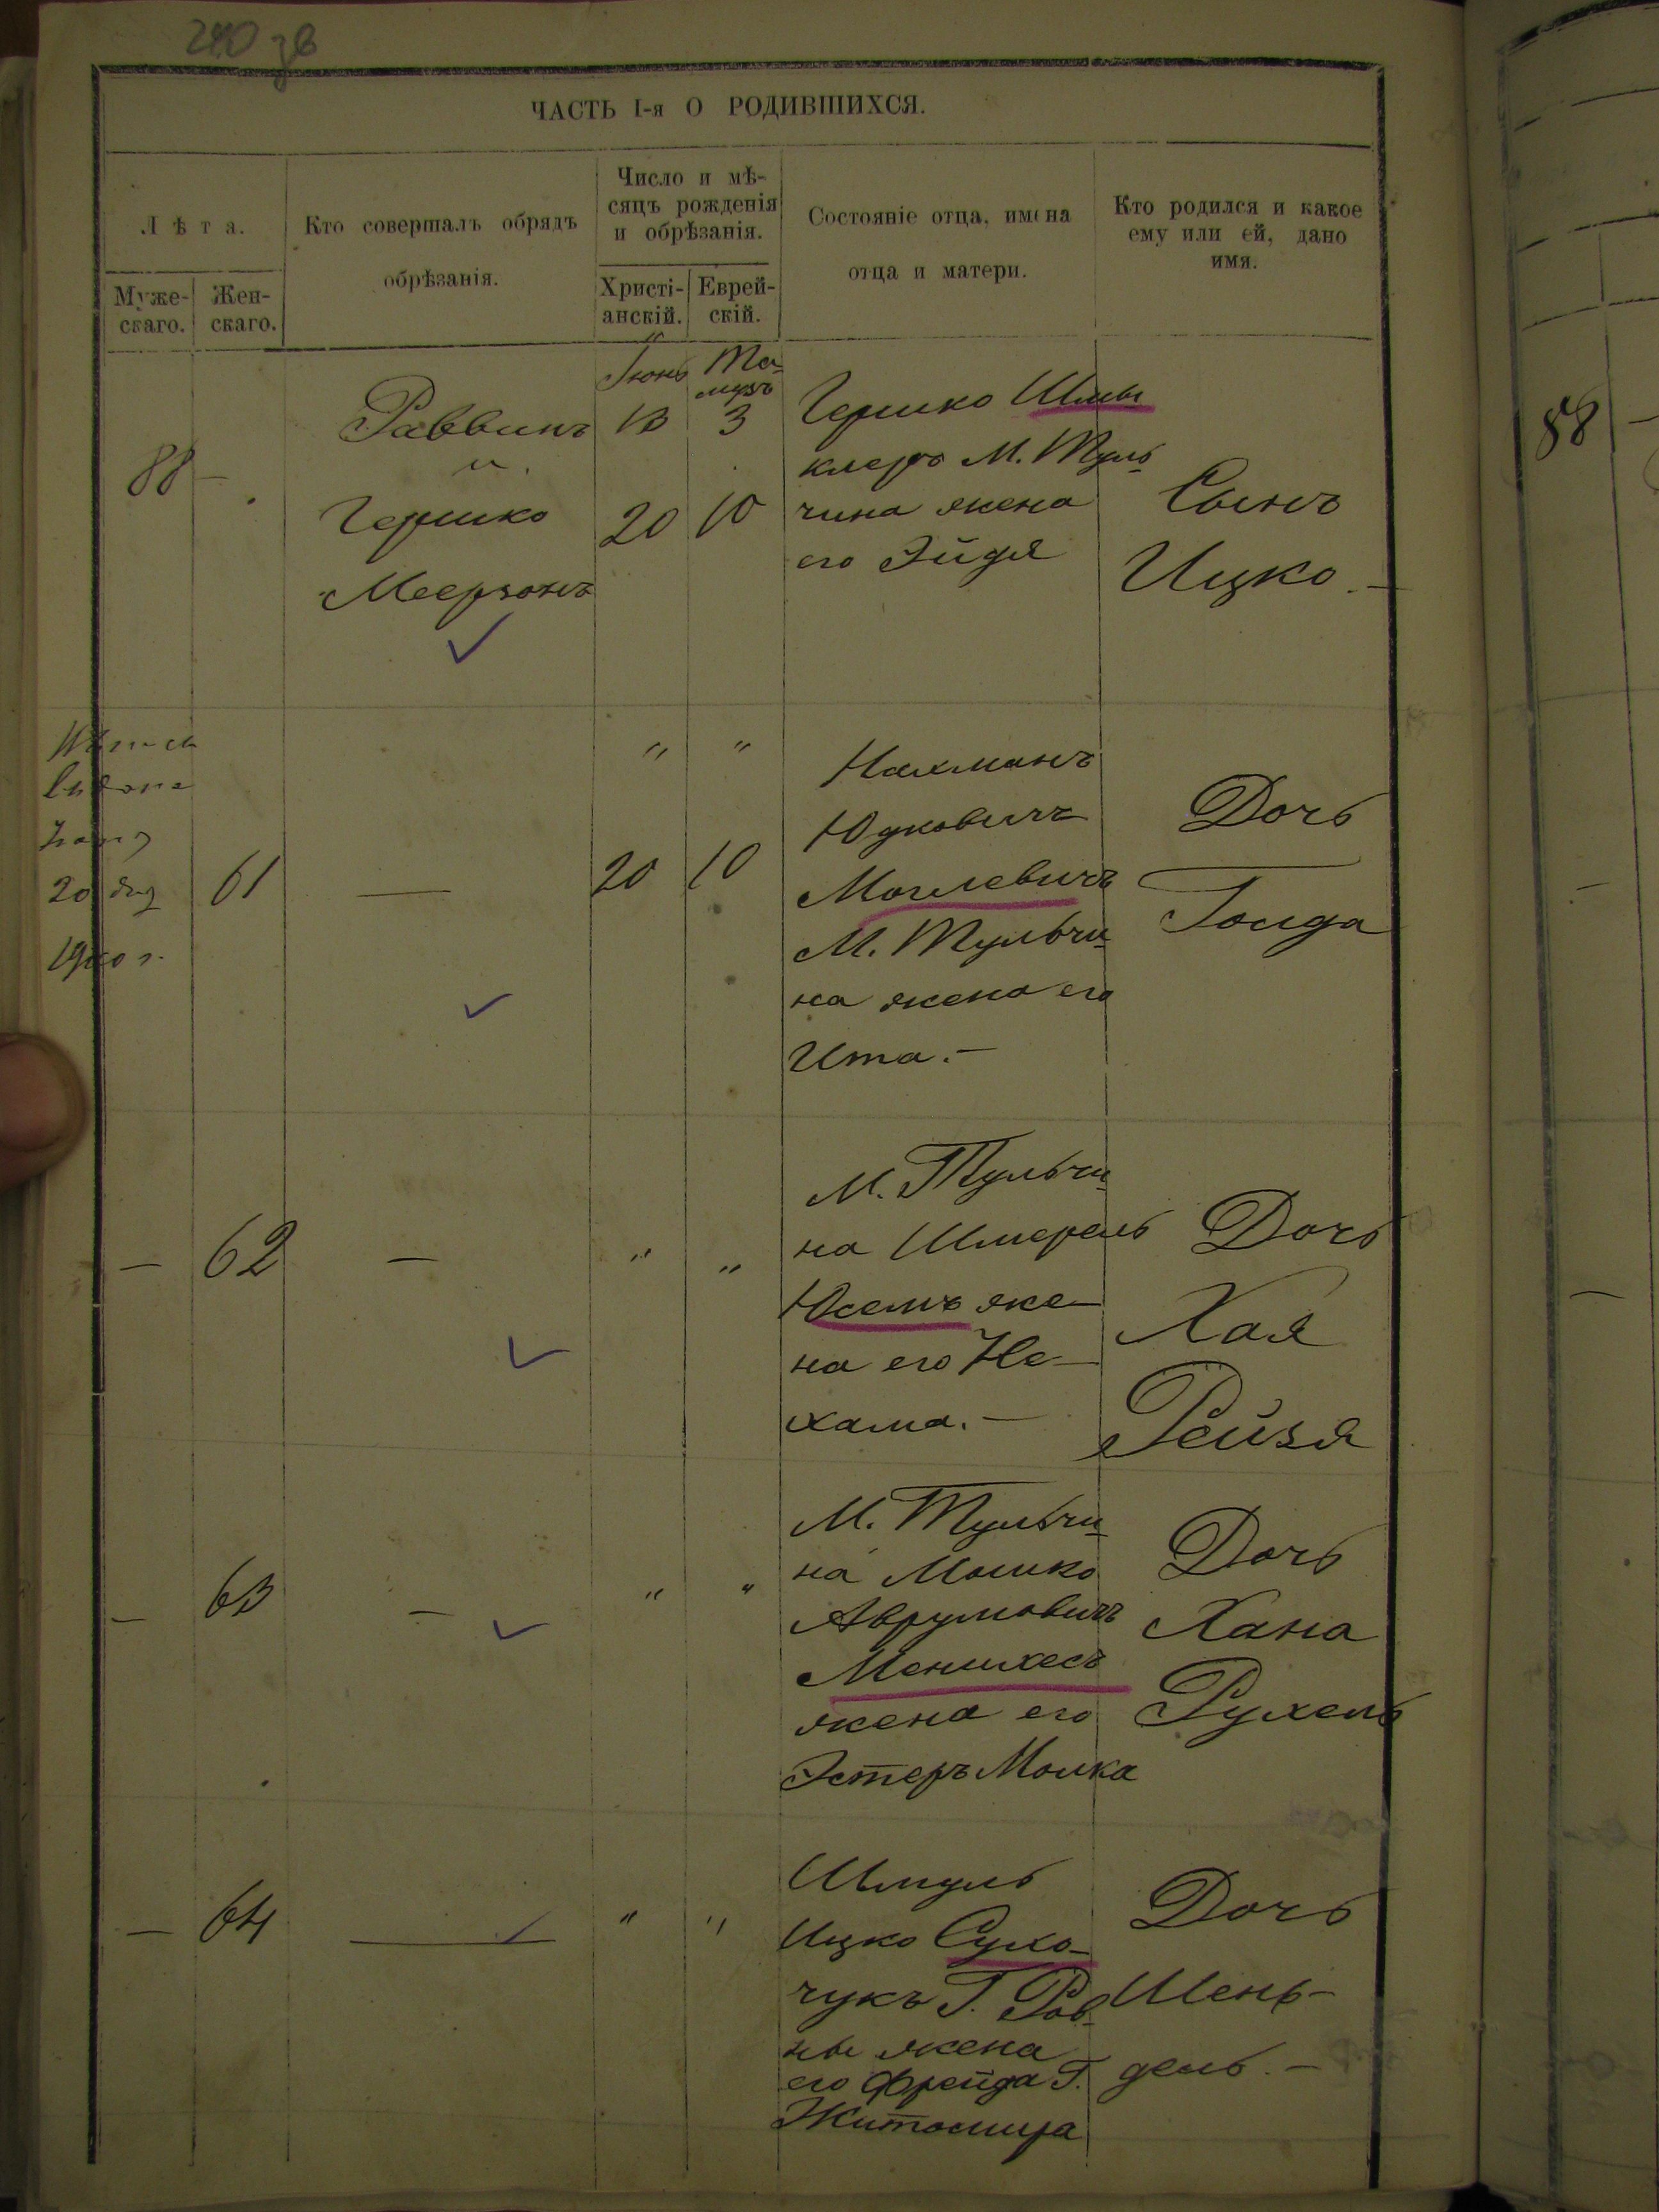 240 зв
ЧАСТЬ I-я О РОДИВШИХСЯ.
Лѣта.
Мужескаго.
Женскаго.
Кто совершалъ обрядъ
обрѣзанія.
Число и мѣ-
сяцъ рожденія
и обрѣзанія.
Христі-
анскій.
Еврей-
скій.
Состояніе отца, имена
отца и матери.
Кто родился и какое
ему или ей, дано
имя.
88 —
Раввинъ
и
Гершко
Меерзонъ
Іюнь
13
20
Та-
музъ
3
10
Гершко Шмы
клеръ М. Туль
чина жена
его Эйдя
Сынъ
Ицко.—
20
61
—
" "
20 10
Нахманъ
Юдковичъ
Могилевичъ
М. Тульчи
на жена его
Ита.—
Дочь
Голда
— 62 — " "
М. Тульчи
на Шмерель
Юсемъ же—
на его Не—
хама.—
Дочь
Хая
Рейзя
— 63 — " "
М. Тульчи
на Мошко
Аврумовичъ
Менихесъ
жена его
Эстеръ Молка
Дочь
Хана
Рухель
— 64 — " "
Шмуль
Ицко Сухо—
чукъ Г. Ров
ны жена
его Фрейда Г.
Житомира
Дочь
Шень—
дель.—
88